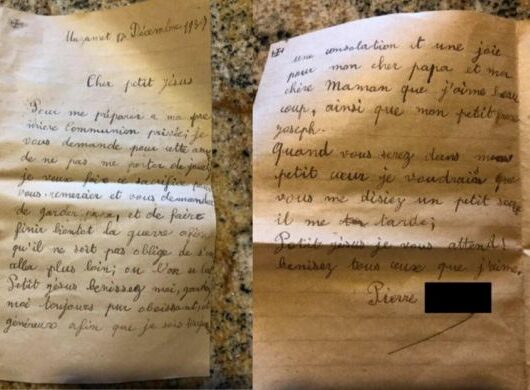 Mazamet 17 Décembre 1939
Cher petit jésus
Pour me préparer a ma pre
mière communion privée; je
vous demande pour cette année
de ne pas me porter de jouet
je veux faire ce sacrifice pour
vous remercier et vous demander
de garder papa, et de faire
finir bientot la guerre afin
qu'il ne soit pas obligé de s'en
allé plus loin; ou l'on se bat
Petit jesus benissez moi, gardez
moi toujours pur obeissant, et
généreux afin que je sois toujours
une consolation et une joie
pour mon cher papa et ma
chère Maman que j'aime beau
coup, ainsi que mon petit frère
joseph.
Quand vous serez dans mon
petit cœur je voudrais que
vous me disiez un petit secret
il me tarde;
Petit jesus je vous attend!
benisez tous ceux que j'aime,
Pierre